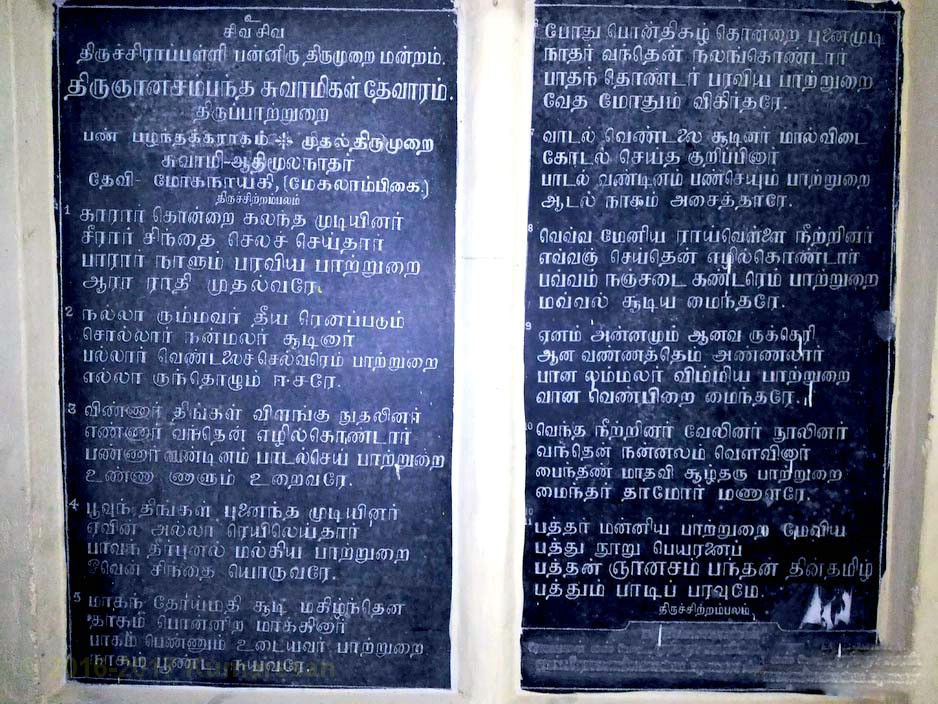 உ
சிவ சிவ
திருச்சிராப்பள்ளி பன்னிரு திருமுறை மன்றம்.
திருஞானசம்பந்த சுவாமிகள் தேவாரம்.
திருப்பாற்றுறை
பண் பழந்தக்கராகம் முதல் திருமுறை
சுவாமி-ஆதிமூலநாதர்
தேவி- மோகநாயகி, (மேகலாம்பிகை.)
திருச்சிற்றம்பலம்
1 காரார் கொன்றை கலந்த முடியினர்
சீரார் சிந்தை செலச் செய்தார்
பாரார் நாளும் பரவிய பாற்றுறை
ஆரா ராதி முதல்வரே.
2 நல்லா ரும்மவர் தீய ரெனப்படும்
சொல்லார் நன்மலர் சூடினார்
பல்லார் வெண்டலைச் செல்வரெம் பாற்றுறை
எல்லா ருந்தொழும் ஈசரே.
3 விண்ணார் திங்கள் விளங்கு நுதலினர்
எண்ணார் வந்தென் எழில்கொண்டார்
பண்ணார் வண்டினம் பாடல்செய் பாற்றுறை
உண்ணா ணாளும் உறைவரே.
4 பூவுந் திங்கள் புனைந்த முடியினர்
ஏவின் அல்லா ரெயிலெய்தார்
பாவந் தீர்புனல் மல்கிய பாற்றுறை
ஓவென் சிந்தை யொருவரே.
5 மாகந் தோய்மதி சூடி மகிழ்ந்தென
தாகம் பொன்னிற மாக்கினார்
பாகம் பெண்ணும் உடையவர் பாற்றுறை
நாகம் பூண்ட நயவரே.
6 போது பொன்திகழ் கொன்றை புனைமுடி
நாதர் வந்தென் நலங்கொண்டார்
பாதந் தொண்டர் பரவிய பாற்றுறை
வேத மோதும் விகிர்தரே.
7 வாடல் வெண்டலை சூடினர் மால்விடை
கோடல் செய்த குறிப்பினார்
பாடல் வண்டினம் பண்செயும் பாற்றுறை
ஆடல் நாகம் அசைத்தாரே.
8 வெவ்வ மேனிய ராய்வெள்ளை நீற்றினர்
எவ்வஞ் செய்தென் எழில்கொண்டார்
பவ்வம் நஞ்சடை கண்டரெம் பாற்றுறை
மவ்வல் சூடிய மைந்தரே.
9 ஏனம் அன்னமும் ஆனவ ருக்கெரி
ஆன வண்ணத்தெம் அண்ணலார்
பான லம்மலர் விம்மிய பாற்றுறை
வான வெண்பிறை மைந்தரே.
10 வெந்த நீற்றினர் வேலினர் நூலினர்
வந்தென் நன்னலம் வௌவினார்
பைந்தண் மாதவி சூழ்தரு பாற்றுறை
மைந்தர் தாமோர் மணாளரே.
11 பத்தர் மன்னிய பாற்றுறை மேவிய
பத்து நூறு பெயரனைப்
பத்தன் ஞானசம் பந்தன் தின்தமிழ்
பத்தும் பாடிப் பரவுமே.
திருச்சிற்றம்பலம்